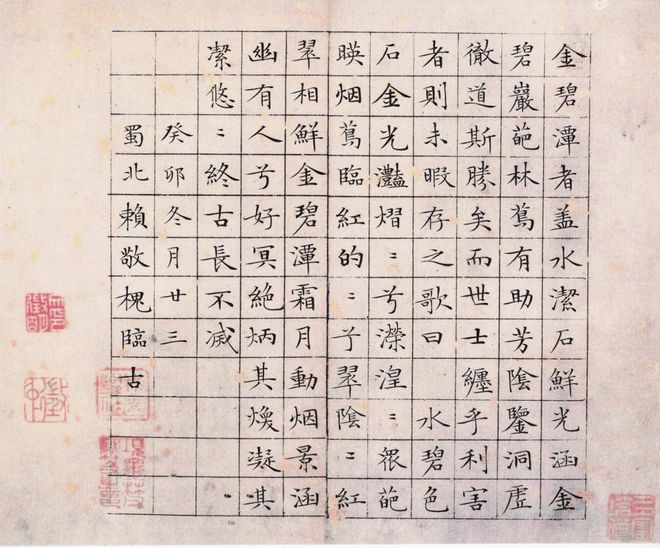 金碧潭者盖水潔石鮮光涵金
碧巖葩林蔦有助芳陰鑒洞虛
徹道斯勝矣而世士纏乎利害
者則未暇存之歌曰 水碧色
石金光灩熠〻兮濚湟〻眾葩
暎烟蔦臨紅的〻兮翠陰〻紅
翠相鮮金碧潭霜月動烟景涵
幽有人兮好冥絶炳其煥凝其
潔悠〻終古長不滅
癸卯冬月廿三
蜀北賴敬槐臨古